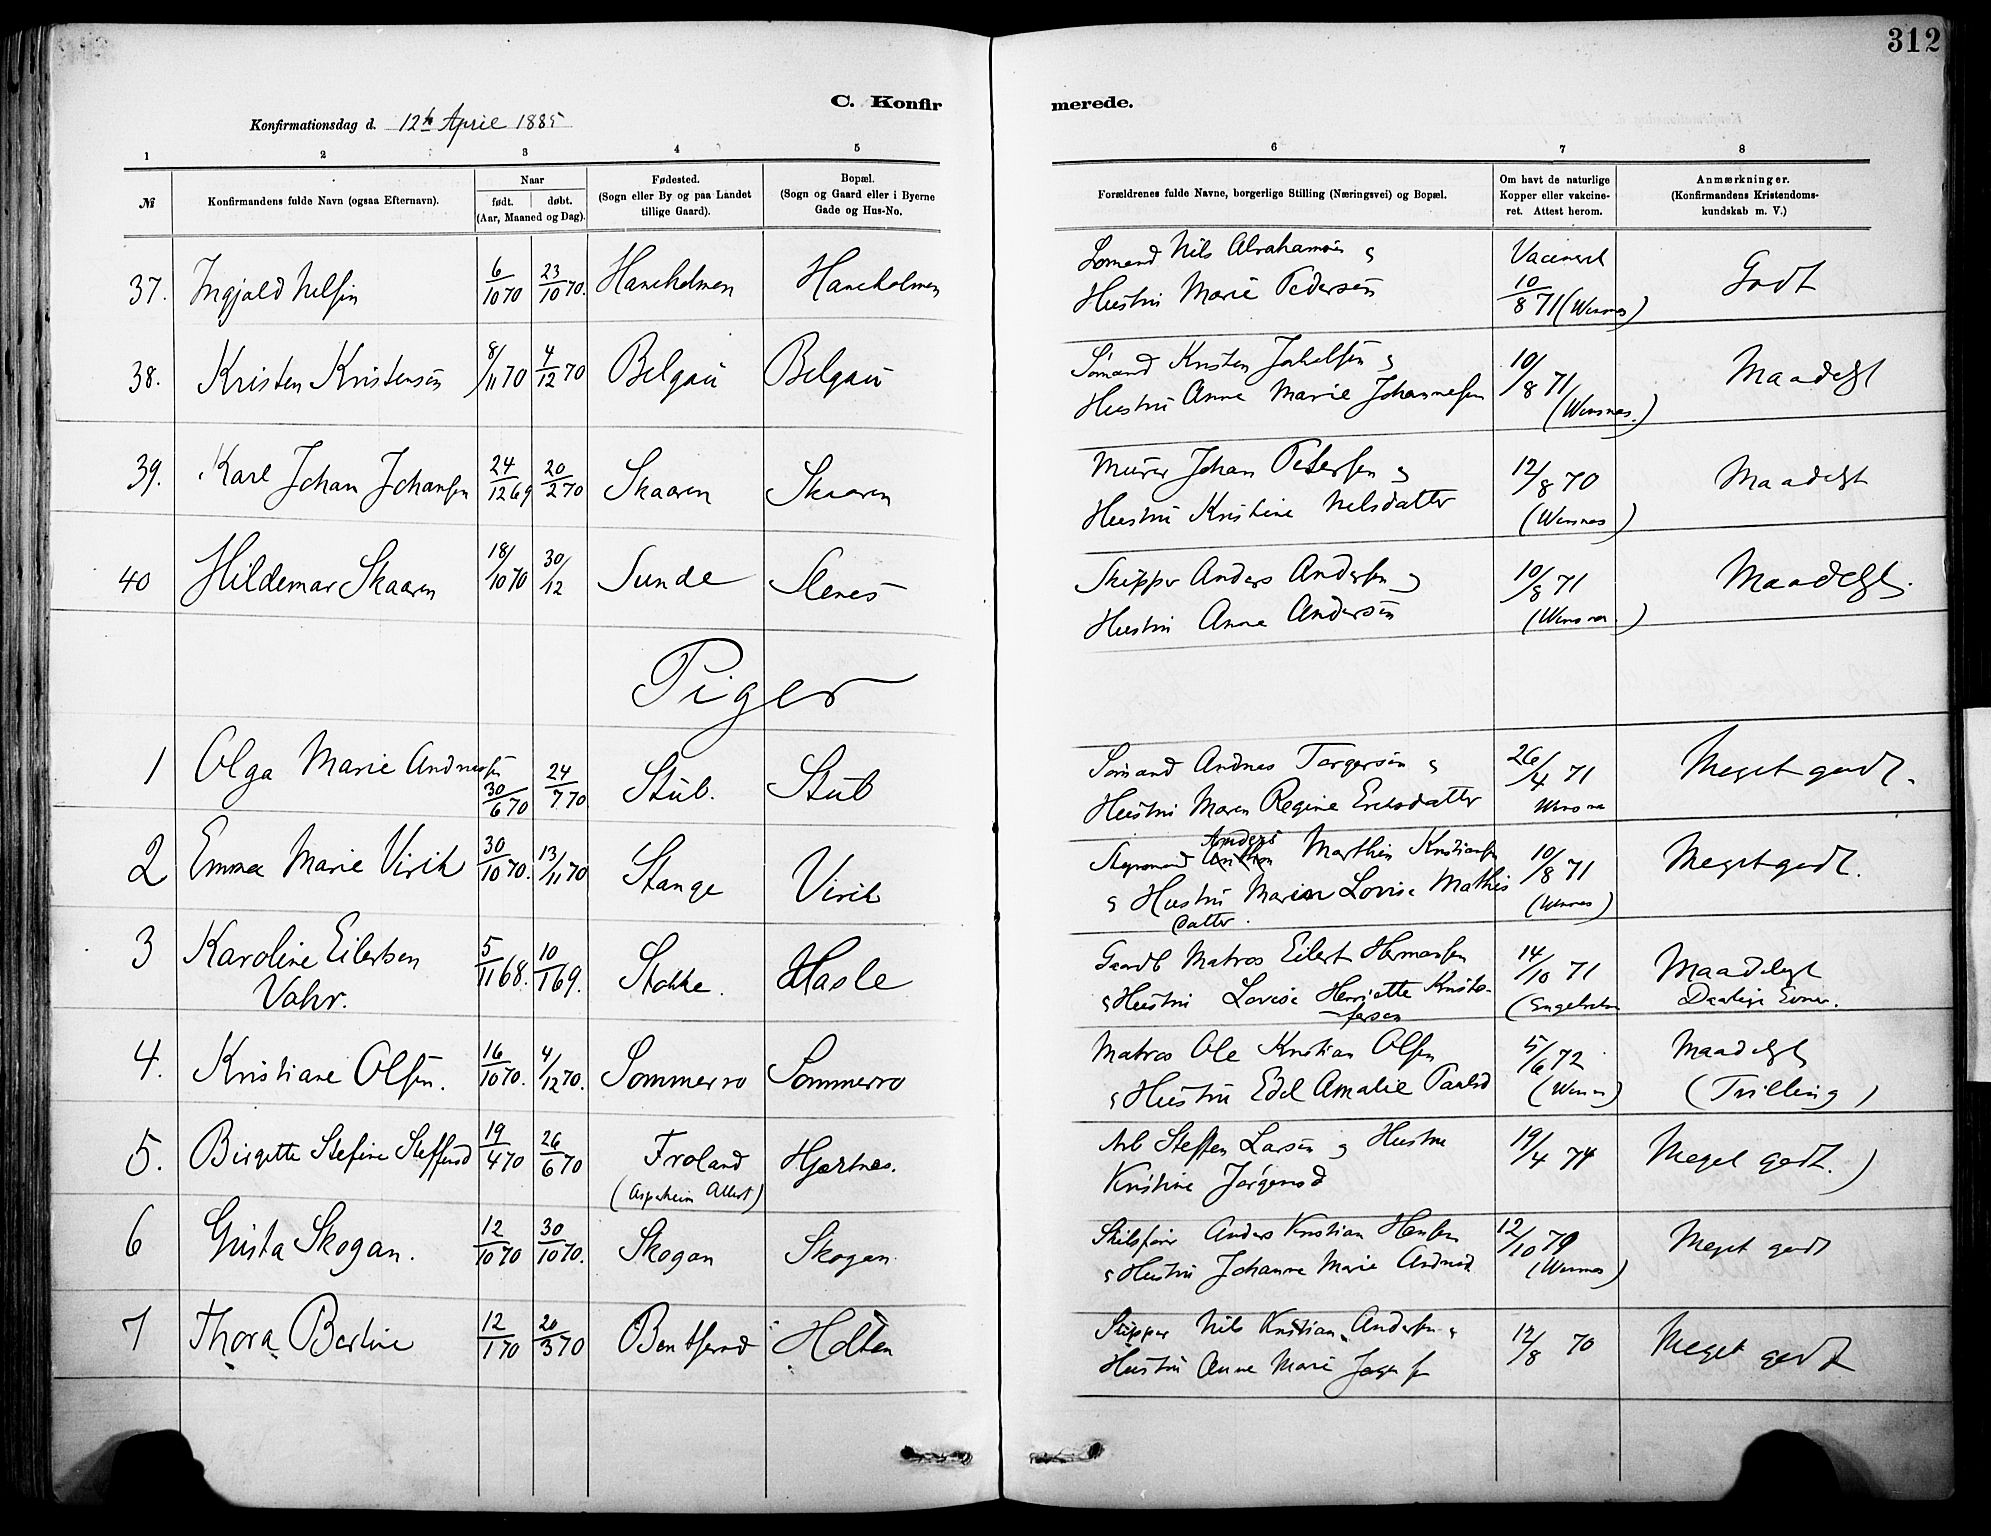 312
C. Konfir merede.
Konfirmationsdag d. 12te April 1885
1 2 3 4 5 6 7 8
№ Konfirmandens fulde Navn (ogsaa Efternavn). Naar født. døbt. (Aar, Maaned og Dag). Fødested. (Sogn eller By og paa Landet tillige Gaard). Bopæl. (Sogn og Gaard eller i Byerne Gade og Hus-No. Forældrenes fulde Navne, borgerlige Stilling (Næringsvei) og Bopæl. Om havt de naturlige Kopper eller vakcineret. Attest herom. Anmærkninger. (Konfirmandens Kristendomskundskab m. V.)
37. Ingjald Nilsen 6/10 70 23/10 70. Haneholmen Haneholmen Sømand Nils Abrahamsen & Vacineret Godt
Hustru Marie Pedersen 10/8 71 (Wensnes)
38. Kristen Kristensen 8/11 70 4/12 70 Belgau Belgau Sømand Kristen Jakelsen & 10/8 71 Maadelgt
Hustru Anne Marie Johannesen (Wensnes.)
39. Karl Johan Johansen 24/12 69 20/2 70 Skaaren Skaaren Murer Johan Petersen & 12/8 70 Maadelgt
Hustru Kristine Nilsdatter (Wensnes)
40 Hildemar Skaaren 18/10 70 30/12 Sunde Stenes Skipper Anders Andersen & 10/8 71 Maadelgt.
Hustru Anne Andersen
Piger
1 Olga Marie Andresen 30/6 70 24/7 70 Stub. Stub Sømand Andres Torgersen & 26/4 71 Meget godt.
Hustru Maren Regine Ericsdatter
2 Emma Marie Virik 30/10 70. 13/11 70 Stange Virik Styrmand Anders Marthin Kristiansen 10/8 71 Meget godt.
& Hustru Maren Lovise Mathisdatter. (Wensnes)
3 Karoline Eilertsen Vahr. 5/11 68. 10/1 69. Stokke. Hasle Gaardb Matros Eilert Hermansen 14/10 71 Maadelgt
& Hustru Lovise Henriette Kristofersen (Engebretsen Daarlige Evner.
4. Kristiane Olsen. 16/10 70. 4/12 70. Sommerro Sommerro Matros Ole Kristian Olsen 5/6 72 Maadelgt
& Hustru Edel Amalie Paulsd (Wensnes) (Tvilling)
5. Birgette Stefine Steffensd 19/4 70 26/6 70 Froland Hjertnes. Arb Steffen Larsen & Hustru 19/4 74 Meget godt.)
(Aspeheim Attest) Kristine Jørgensd
6 Gusta Skogan. 12/10 70 30/10 70. Skogan Skogan Anders Kristian Hansen 12/10 70 Meget godt
& Hustru Johanne Marie Andresd (Wensnes)
7 Thora Bertine 12/1 70 20/3 70 Bentserød Holten Skipper Nils Kristian Andersen & 12/8 70 Meget godt
Hustru Anne Marie